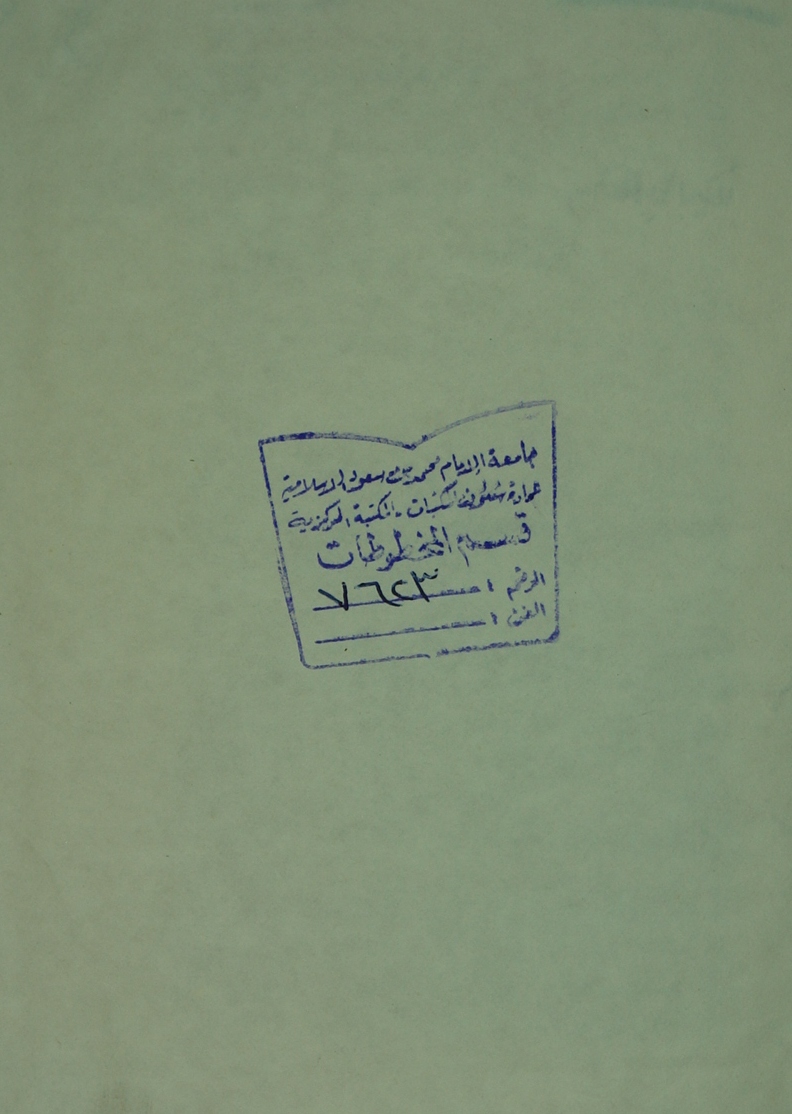 جامعة الإمام محمد بن سعود الإسلامية
عمادة شئون المكتبات - المكتبة المركزية
قسم المخطوطات
الرقم : ٧٦٢٣
الفن :